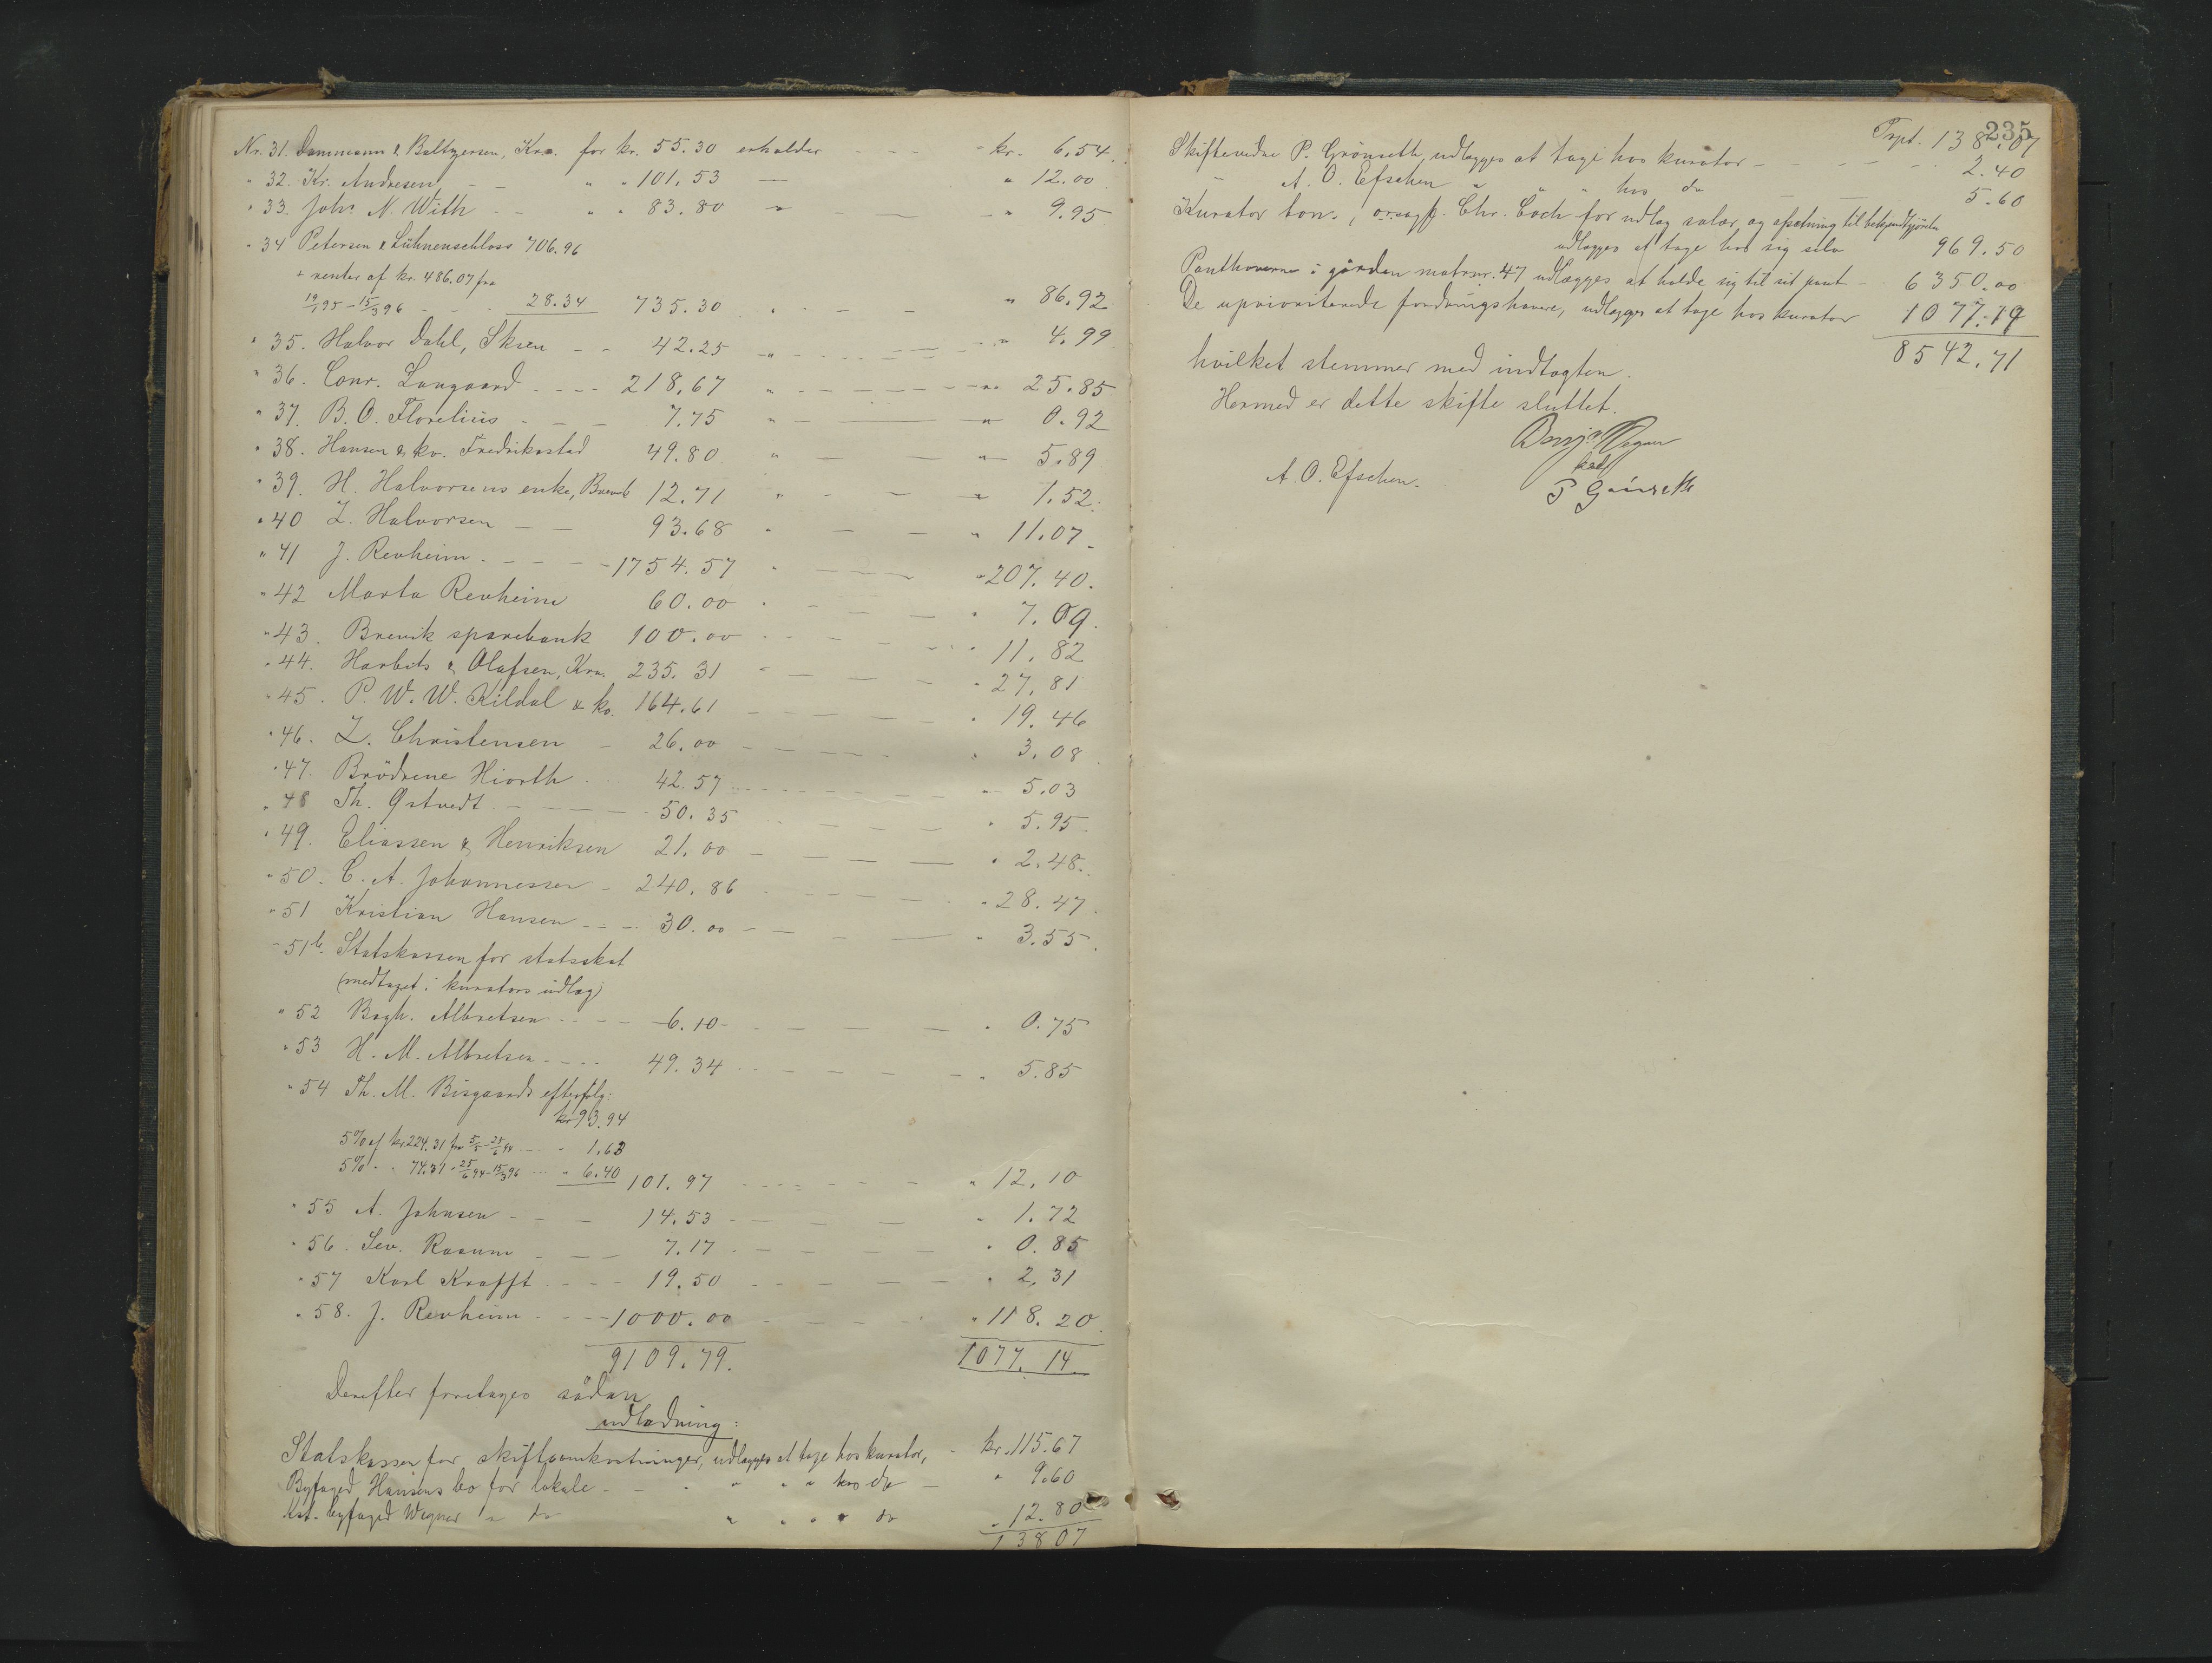 Nr. 31. Dammann & Baltzersen, Kra. for kr. 55.30 erholder - - - - kr. 6.54
" 32. Kr. Andresen - - " " 101.53 — " 12.00
" 33. Johs N. With - - " " 83.80 " - — - " 9.95
" 34 Petersen & Lühnenschloss 706.96
+ renter af kr. 486.07 fra
19/1 95 - 15/3 96 - - - 28.34 735.30 " - - - " 86.92
" 35. Halvor Dahl, Sksen - - 42.25 - " - - - " 4.99
" 36. Conr. Langaard - - - - 218.67 " - - - " 25.85
" 37. B. O. Florelius - - - 7.75 " - — " 0.92
" 38. Hansen & ko. Fredrikastad 49.80 " — — " 5.89
" 39. H. Halvorsens enke, Brevik 12.71 " - - " 1.52
" 40 L. Halvorsen - — 93.68 " — - " 11.07
" 41 J. Revheim - - - - 1754.57 " - — " 207.40.
" 42 Marta Revheim 60.00 " - - - " 7.09.
" 43. Brevik sparebank 100.00 - - - " 11.82
" 44. Harbits & Olafsen, Kra. 235.31 - - - - " 27.81
" 45. P. W. W. Kildal & ko. 164.61 - - - - " 19.46
" 46. L. Christensen - 26.00 - - - - " 3.08
" 47. Brödrene Hiorth - - 42.57 - - - - " 5.03
" 48 Th. Østvedt - - - - 50.35 - - - " 5.95
" 49. Eliassen & Henriksen 21.00 - - - — " 2.48.
" 50. C. A. Johannessen - 240.86 - - - " 28.47
" 51 Kristian Hansen - - - 30.00 - - - — " 3.55.
" 51b. Statskassen for statsskat
(medtaget i kurators udlæg)
" 52 Bagh. Albretsen - - - 6.10 - - - - - " 0.75
" 53 H. M. Albretsen - - - 49.34 - - - - " 5.85
" 54 Th. M. Bisgaards efterfølg:
kr 93.94
5% af kr 224.31 fra 5/5 - 25/6 94 - - " 1.63
5% " " 74.31 " 25/6 94 - 15/3 96 - - " 6.40 101.97 - - - - " 12.10
" 55 A. Johnsen - - - 14.53 - - - - " 1.72
" 56. Sev. Raaum - - - 7.17 - - - - " 0.85
" 57 Karl Krafft - - - 19.50 - - - - " 2.31
" 58. J. Revheim - - - 1000.00 - - - " 118.20
9109.79. 1077.14
Derefter foretages sådan
udlodning:
Statskassen for skifteomkostninger, udlægges at tage hos kurator, - kr. 115.67
Byfoged Hansens bo for lokale - - " " " hos do — " 9.60
kst. byfoged Wegner " do " " " " do " 12.80
138 07
235
Trpt. 138.07
Skiftevidne P. Grönseth udlægges at tage hos kurator - - - - 2.40
— A. O. Efschen " " " hos do — — 5.60
Kurator bon., orsagf. Chr. Coch for udlæg salær og afsetning til bekjendtgjörelse
udlægges at tage hos sig selv 969.50
Panthaverne i gården matrnr. 47 udlægges at holde sig til sit pant - 6350.00
De uprioriterede fordringshavere, udlægges at tage hos kurator 1077.14
8542.71
hvilket stemmer med indtægten.
Hermed er dette skifte sluttet.
Benj. Wegner
kst
A. O. Efschen. P Grönseth